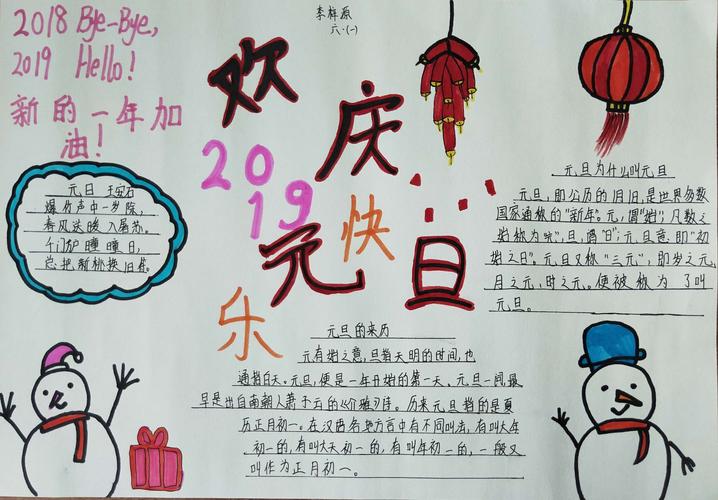 2018 Bye-Bye,
2019 Hello!
新的一年加
油!
李梓源
六·(一)
欢
庆
2019
快
元旦
乐
元日 王安石
爆竹声中一岁除,
春风送暖入屠苏。
千门万户曈曈日,
总把新桃换旧符。
元旦为什么叫元旦
元旦,即公历的1月1日,是世界多数
国家通称的“新年”。元,谓“始”,凡数之
始称为“元”,旦,谓“日”;元旦意即“初
始之日”。元旦又称“三元”,即岁之元,
月之元,时之元。便被称为了叫
元旦。
元旦的来历
元有始之意,旦指天明的时间,也
通指白天。元旦,便是一年开始的第一天、元旦一词最
早是出自南朝人萧子云的《介雅》诗。历来元旦指的是夏
历正月初一。在汉语各地方言中有不同叫法,有叫大年
初一的,有叫大天初一的,有叫年初一的,一般又
叫作为正月初一。